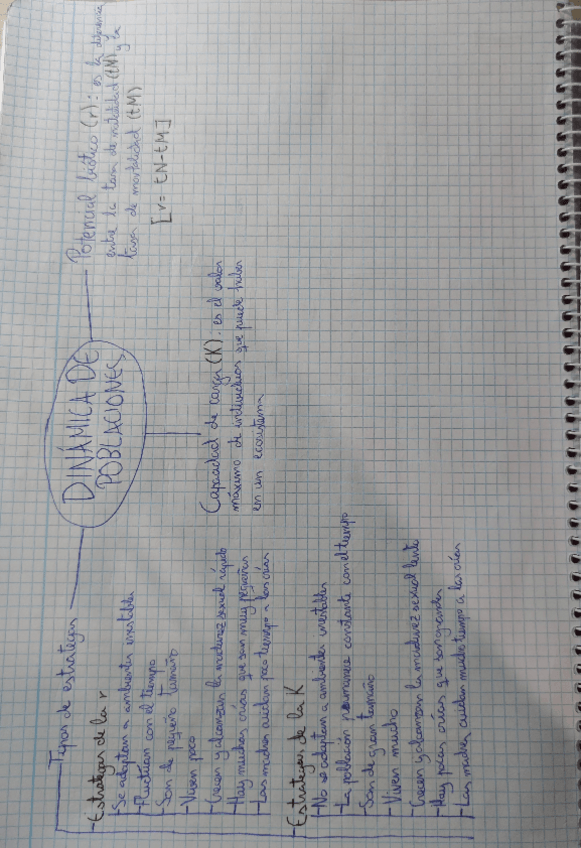 DINÁMICA DE
POBLACIONES
Tipos de estrategas
- Estrategas de la r
- Se adaptan a ambientes inestables
- Fluctúan con el tiempo
- Son de pequeño tamaño
- Viven poco
- Crecen y alcanzan la madurez sexual rápido
- Hay muchas crías que son muy pequeñas
- Las madres cuidan poco tiempo a las crías
- Estrategas de la K
- No se adaptan a ambientes inestables
- La población permanece constante con el tiempo
- Son de gran tamaño
- Viven mucho
- Crecen y alcanzan la madurez sexual lento
- Hay pocas crías que son grandes
- Las madres cuidan mucho tiempo a las crías
Capacidad de carga (K): es el valor
máximo de individuos que puede haber
en un ecosistema
Potencial biótico (r): es la diferencia
entre la tasa de natalidad (tN) y la
tasa de mortalidad (tM)
[r = tN - tM]